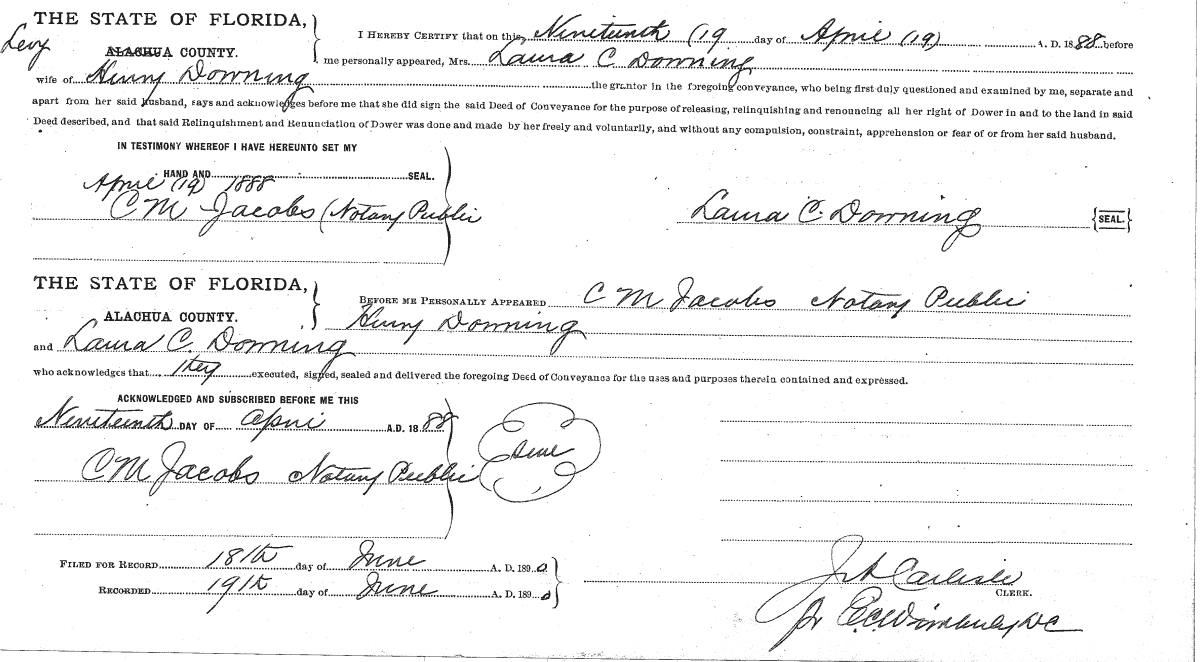 THE STATE OF FLORIDA,
Levy
ALACHUA COUNTY.
I HEREBY CERTIFY that on this Nineteenth (19 day of April (19) A. D. 1888 before
me personally appeared, Mrs. Laura C Downing
wife of Henry Downing the grantor in the foregoing conveyance, who being first duly questioned and examined by me, separate and
apart from her said husband, says and acknowledges before me that she did sign the said Deed of Conveyance for the purpose of releasing, relinquishing and renouncing all her right of Dower in and to the land in said
Deed described, and that said Relinquishment and Renunciation of Dower was done and made by her freely and voluntarily, and without any compulsion, constraint, apprehension or fear of or from her said husband.
IN TESTIMONY WHEREOF I HAVE HEREUNTO SET MY
HAND AND SEAL.
April (19) 1888
C M Jacobs (Notary Public
Laura C. Downing {SEAL.}
THE STATE OF FLORIDA,
ALACHUA COUNTY.
BEFORE ME PERSONALLY APPEARED C M Jacobs Notary Public
Henry Downing
and Laura C. Downing
who acknowledges that they executed, signed, sealed and delivered the foregoing Deed of Conveyance for the uses and purposes therein contained and expressed.
ACKNOWLEDGED AND SUBSCRIBED BEFORE ME THIS
Nineteenth DAY OF April A.D. 1888
C M Jacobs Notary Public
FILED FOR RECORD 18th day of June A. D. 1890
RECORDED 19th day of June A. D. 1890
Carlisle
CLERK.